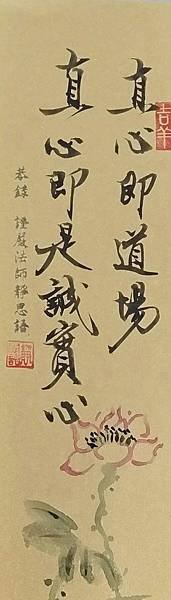 真心即道場
真心即是誠實心
恭錄 證嚴法師靜思語
吉羊